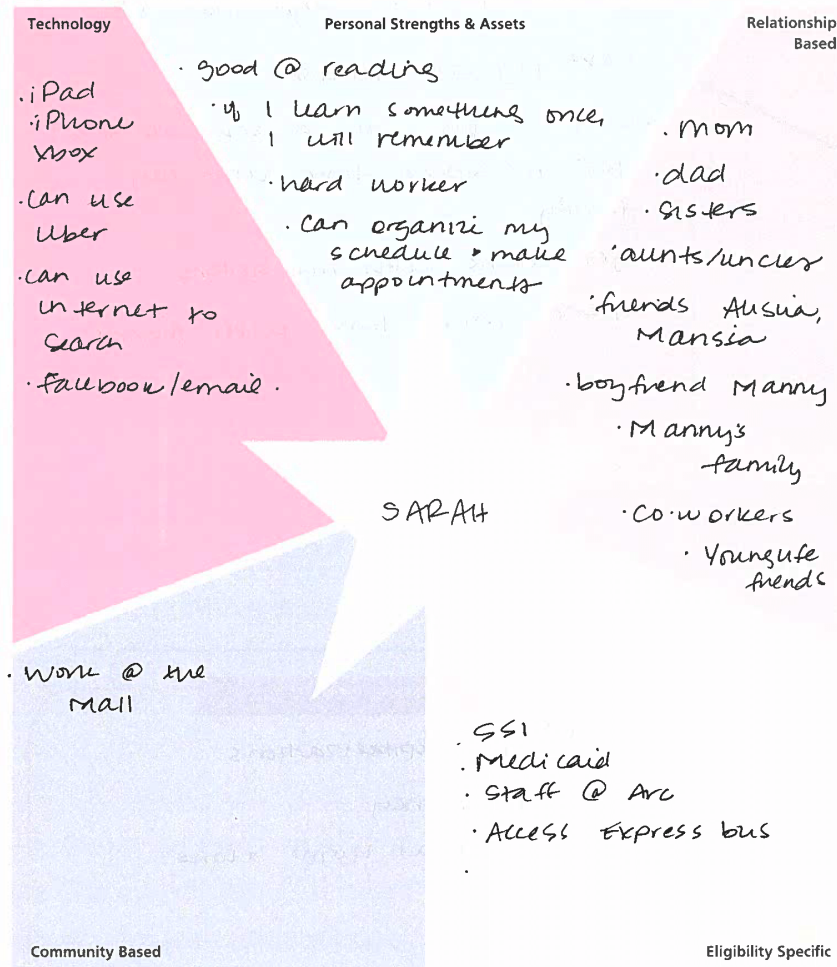 Technology
Personal Strengths & Assets
Relationship
Based
· iPad
· iPhone
Xbox
· can use
Uber
· can use
internet to
search
· facebook/email ·
· good @ reading
· if I learn something once,
I will remember
· hard worker
· can organize my
schedule + make
appointments
· mom
· dad
· sisters
· aunts/uncles
· friends
Marisia
· boyfriend Manny
· Manny's
family
· co-workers
· Younglife
friends
SARAH
· Work @ the
Mall
· SSI
· Medicaid
· Staff @ Arc
· Access Express bus
·
Community Based
Eligibility Specific